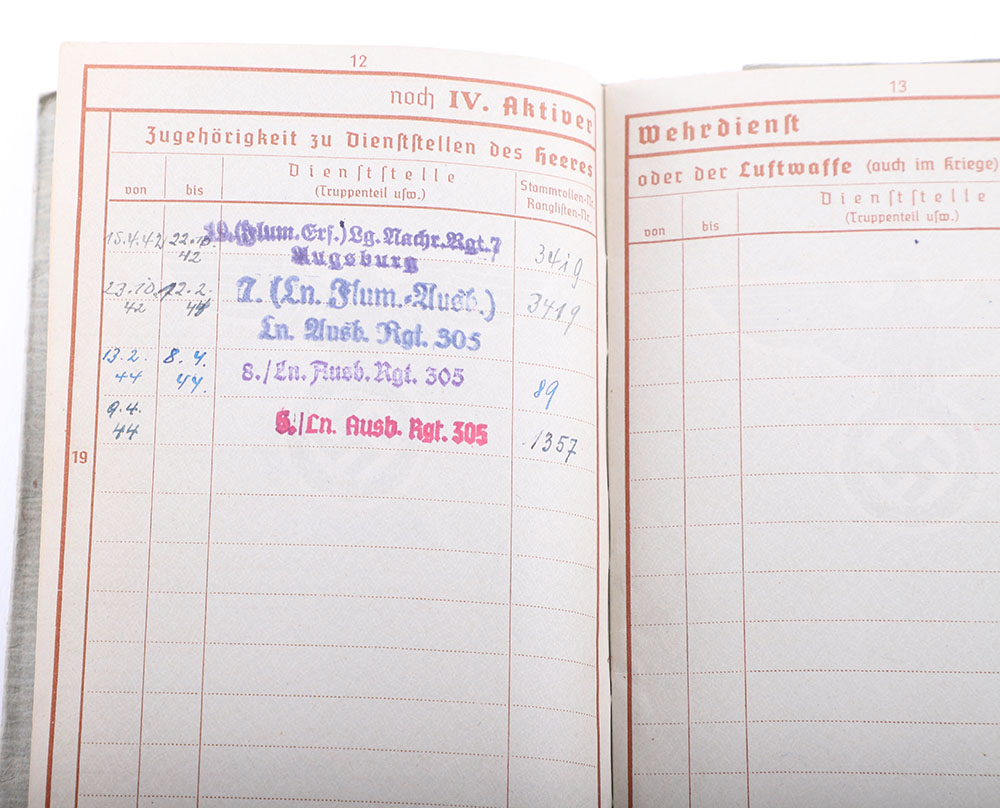 12
noch IV. Aktiver
Zugehörigkeit zu Dienststellen des Heeres
von
bis
Dienststelle
(Truppenteil usw.)
Stammrollen-Nr.
Ranglisten-Nr.
15.4.42 22.10. 42 (Flum.Ers.) Lg.Nachr.Rgt.7 3419
Augsburg
23.10. 42 12.2. 44 7. (Ln. Flum.-Ausb.) 3419
Ln. Ausb. Rgt. 305
13.2. 44 8.4. 44. 8./Ln. Ausb. Rgt. 305 89
9.4. 44 /Ln. Ausb. Rgt. 305 1357
19
13
Wehrdienst
oder der Luftwaffe (auch im Kriege)
von
bis
Dienststelle
(Truppenteil usw.)